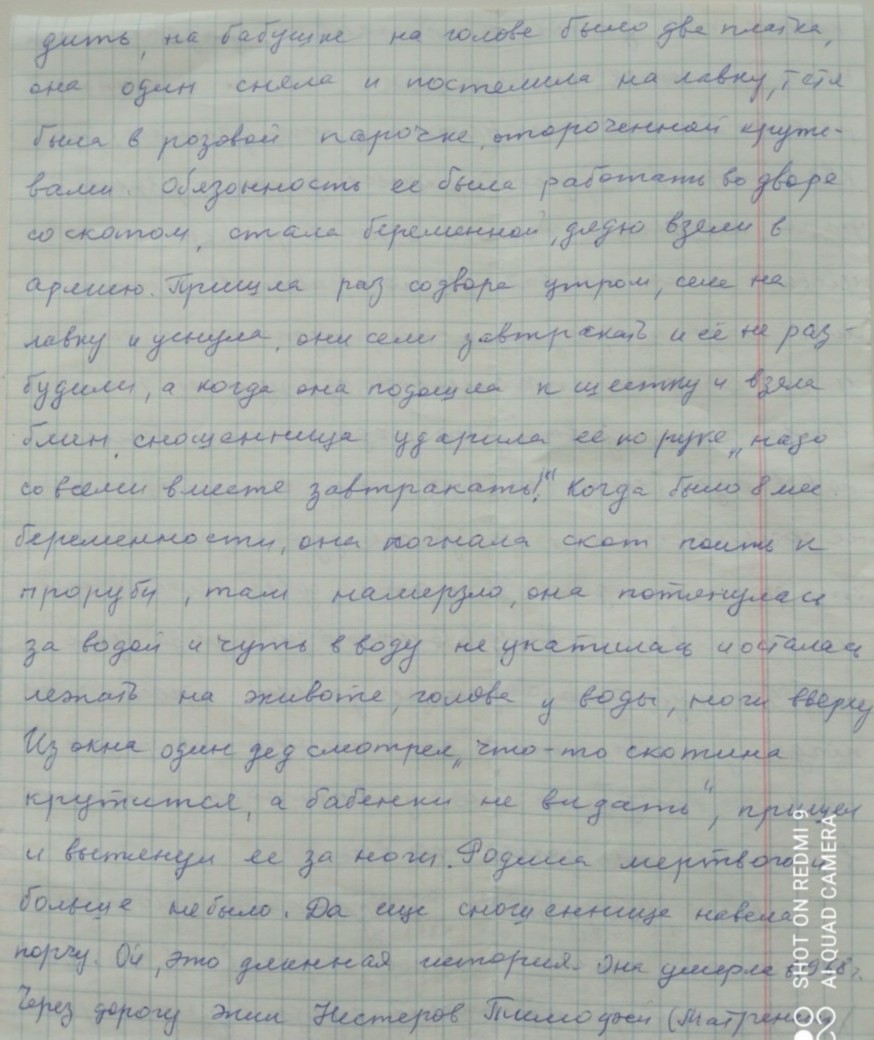 дить, на бабушке на голове было два платка,
она один сняла и постелила на лавку, тетя
была в розовой парочке, отороченной круже-
вами. Обязонность ее была работать во дворе
со скотом, стала беременной, дядю взяли в
армию. Пришла раз со двора утром, села на
лавку и уснула, они сели завтракать и её не раз-
будили, а когда она подошла к шестку и взяла
блин, сношенница ударила ее по руке „надо
со всеми вместе завтракать!" Когда было 8 мес
беременности, она погнала скот поить к
проруби, там намерзло, она потянулась
за водой и чуть в воду не укатилась и осталась
лежать на животе, голова у воды, ноги вверху
Из окна один дед смотрел „что-то скотина
крутится, а бабенки не видать", пришел
и вытянул ее за ноги. Родила мертвого и
больше не было. Да еще сношенница навела
порчу. Ой, это длинная история. Она умерла в
Через дорогу жил Нестеров Тимофей (Матрении
SHOT ON REDMI 9
AI QUAD CAMERA